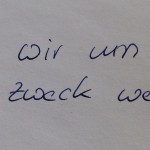 wir um
zweck we